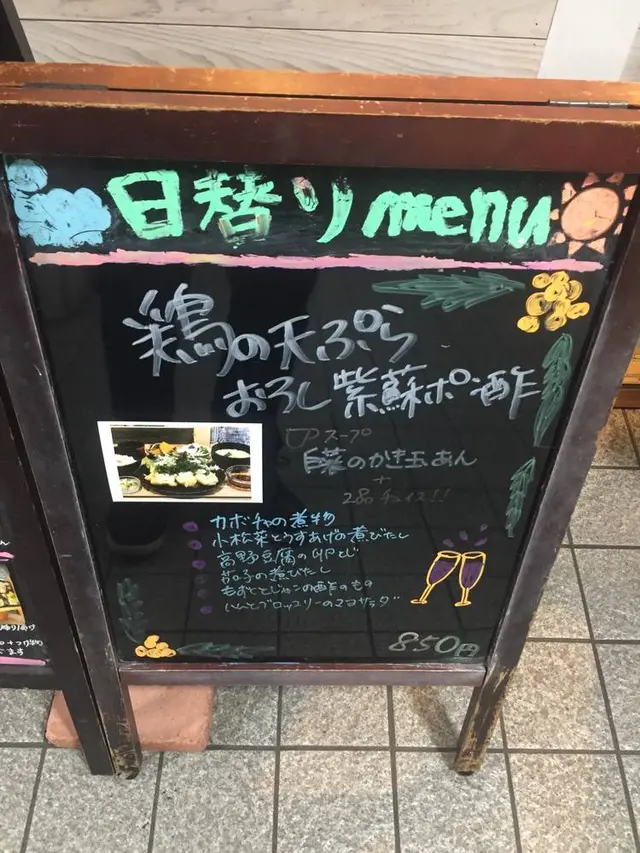 日替り menu
鶏の天ぷら
おろし紫蘇ポン酢
スープ
白菜のかき玉あん
+
2品チョイス!!
カボチャの煮物
小松菜とうすあげの煮びたし
高野豆腐の卵とじ
茄子の煮びたし
もずくとじゃこの酢のもの
ハムとブロッコリーのマヨサラダ
850円